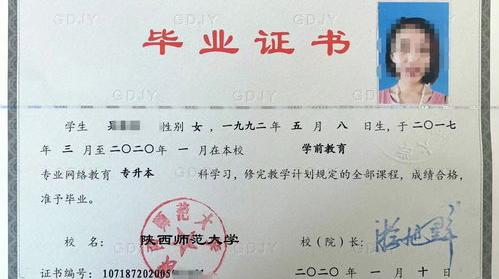 GDJY GDJY
毕业证书
GDJY GDJY
学生 性别 女，一九九二年 五 月 八 日生，于二〇一七
年 三 月至二〇二〇年 一 月在本校 学前教育
专业网络教育 专升本 科学习，修完教学计划规定的全部课程，成绩合格，
准予毕业。
校 名： 陕西师范大学 校（院）长：
证书编号：107187202005 二〇二〇年 一 月 十 日